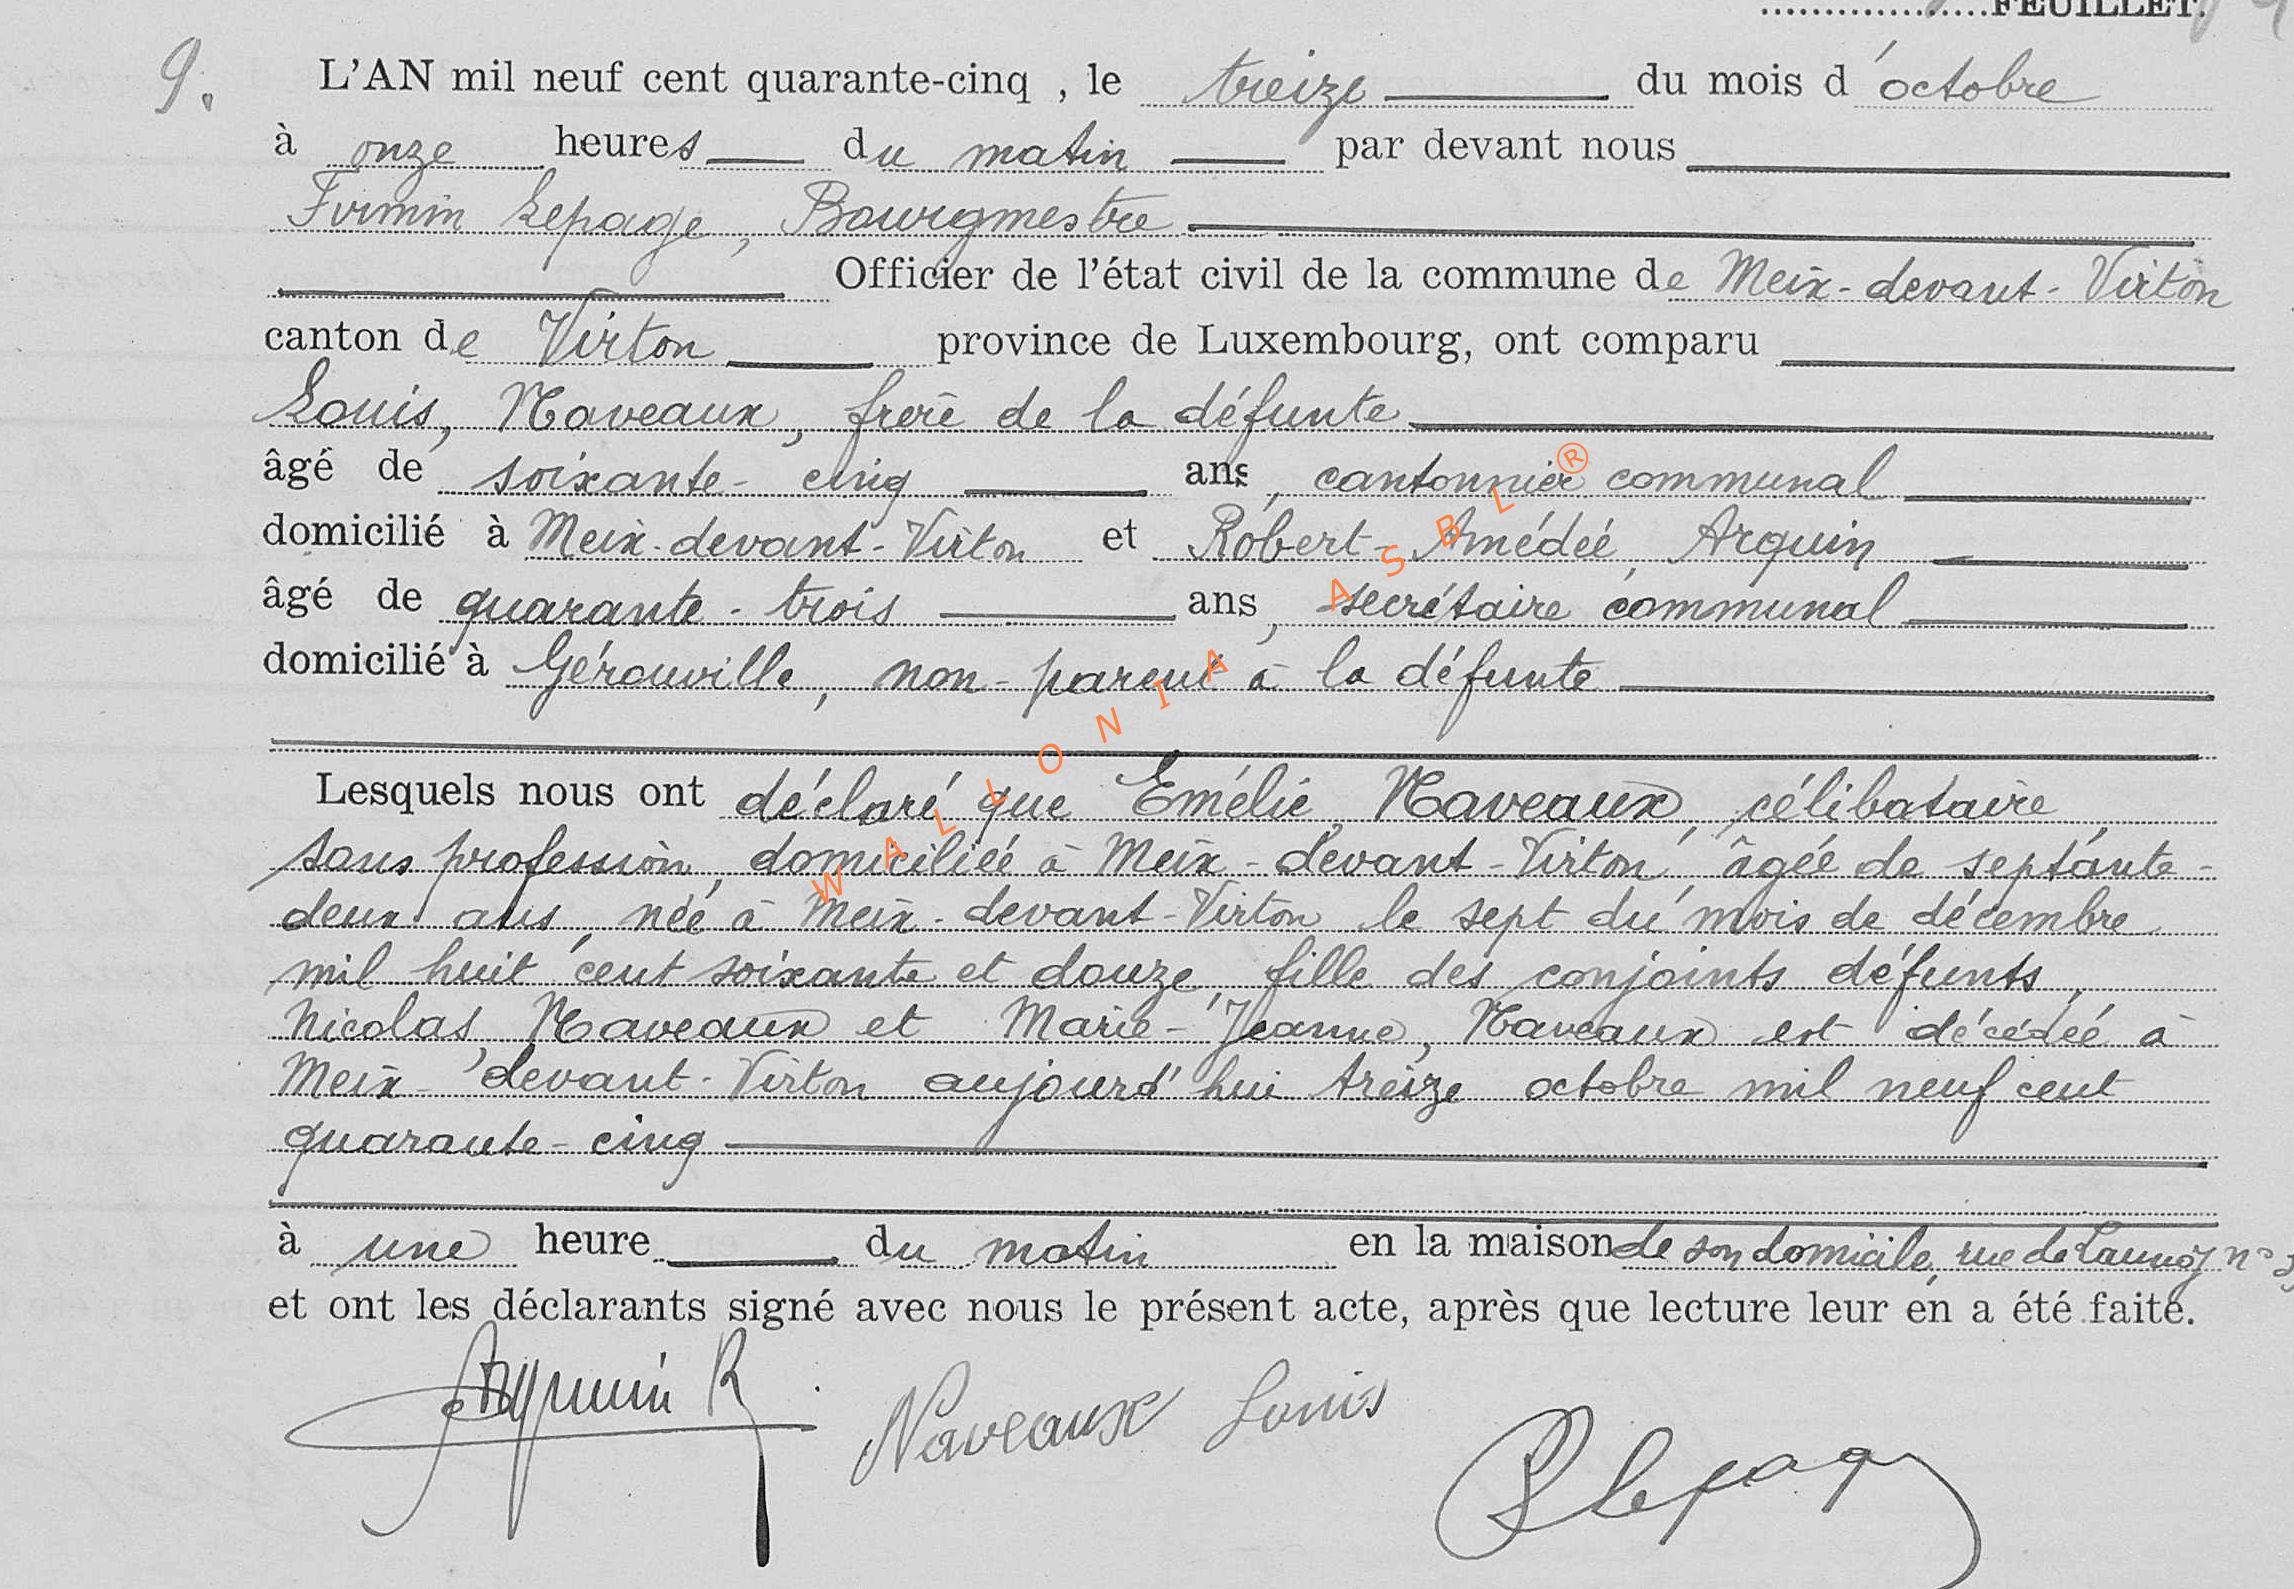 FEUILLET.
9. L'AN mil neuf cent quarante-cinq , le treize du mois d'octobre
à onze heures du matin par devant nous
Firmin Lepage, Bourgmestre
Officier de l'état civil de la commune de Meix-devant-Virton
canton de Virton province de Luxembourg, ont comparu
Louis, Naveaux, frère de la défunte
âgé de soixante-cinq ans, cantonnier communal
domicilié à Meix-devant-Virton et Robert-Amédée, Arquin
âgé de quarante-trois ans, secrétaire communal
domicilié à Gérouville, non-parent à la défunte
Lesquels nous ont déclaré que Emélie, Naveaux, célibataire,
sans profession, domiciliée à Meix-devant-Virton, âgée de septante-
deux ans, née à Meix-devant-Virton le sept du mois de décembre
mil huit cent soixante et douze, fille des conjoints défunts,
Nicolas, Naveaux et Marie-Jeanne, Naveaux est décédée à
Meix-devant-Virton aujourd'hui treize octobre mil neuf cent
quarante-cinq
à une heure du matin en la maison de son domicile, rue de Launoy n°
et ont les déclarants signé avec nous le présent acte, après que lecture leur en a été faite.
Arquin R. Naveaux Louis
Lepage
WALLONIA ASBL ®